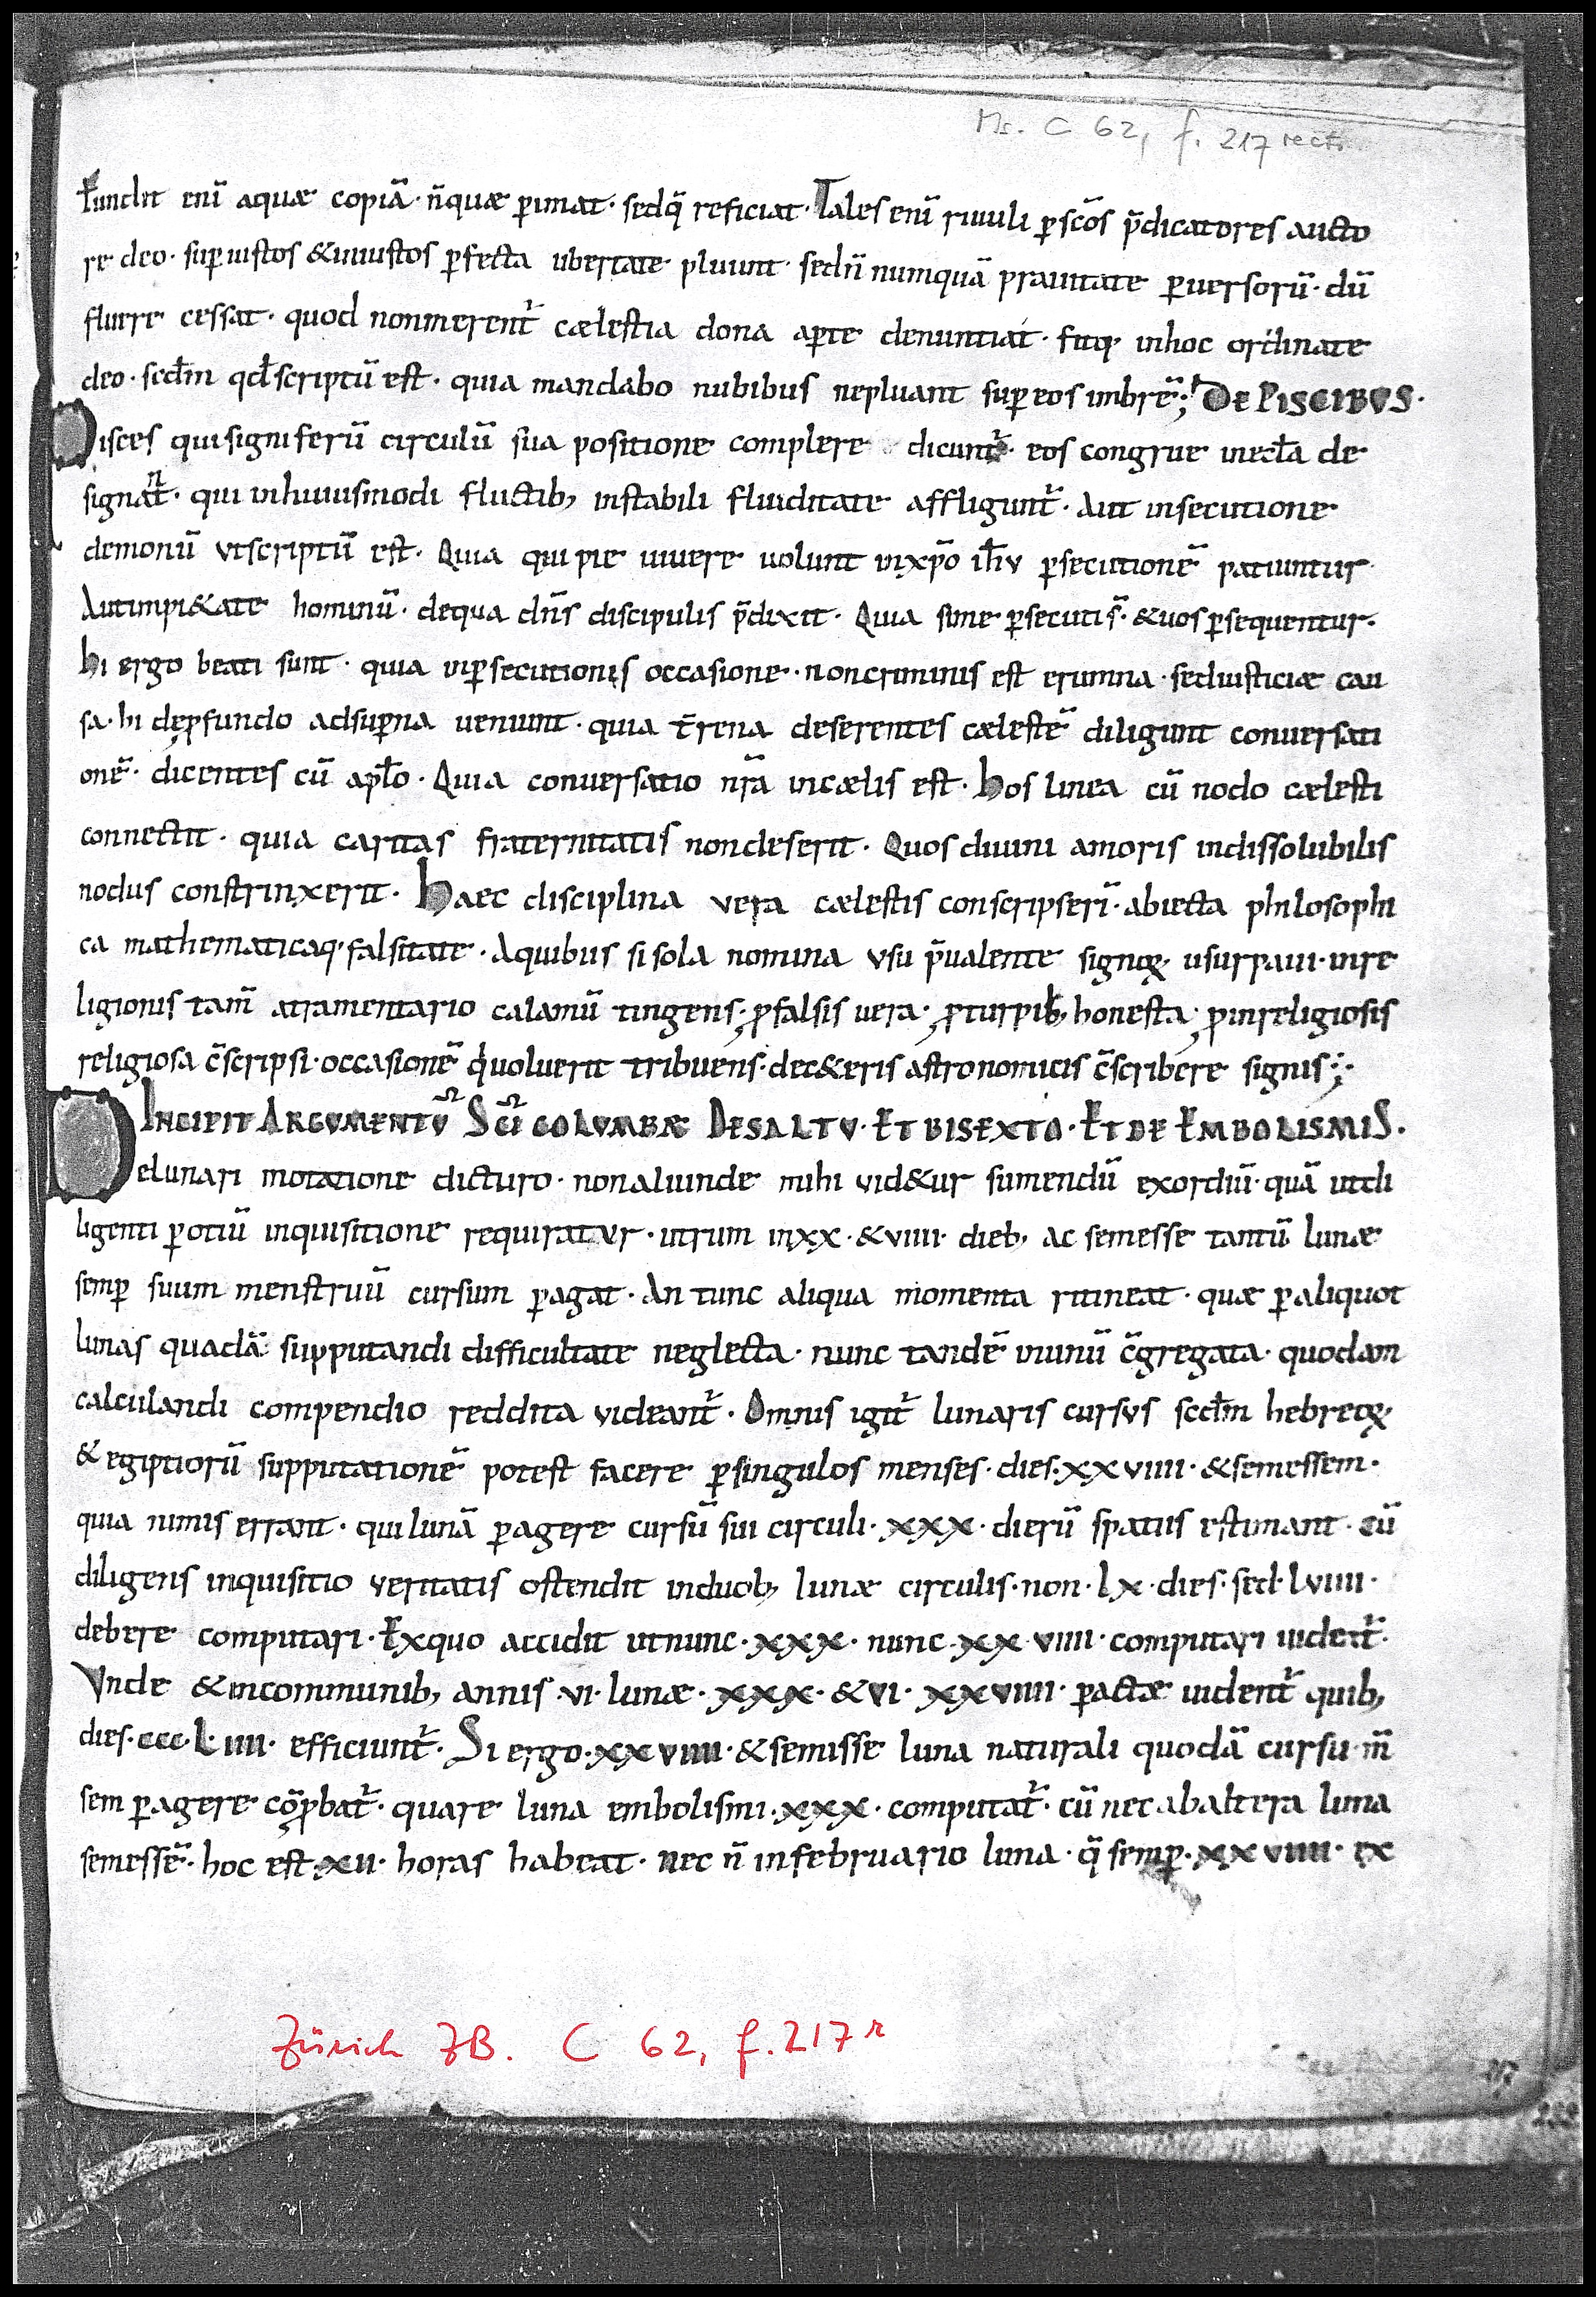 Ms. C 62, f. 217 recto
Fundit enī aquæ copiā · n̄quæ ꝑimat · sedq̄ reficiat · Tales enī riuuli ꝑ sc̄os p̄dicatores aucto
re deo · suꝑ iustos &iniustos ꝑfecta ubertate pluunt · sedn̄ numquā prauitate ꝑuersorū · dū
fluere cessat · quod nonmerent᷑ cælestia dona aꝑte denuntiat · fitq; inhoc ordinate
deo · scd̄m qd̄ scriptū est · quia mandabo nubibus nepluant suꝑ eos imbrē; DE PISCIBVS ·
Pisces qui signiferū circulū sua positione complere dicunt᷑ · eos congrue inecl̄a de
signant᷑ · qui inhuiusmodi fluctib; instabili fluiditate affligunt᷑ · Aut insecutione
demonū vt scriptū est · Quia qui pie uiuere uolunt inxp̄o ih̄v ꝑsecutionē patiuntur ·
Aut impi&ate hominū · dequa dn̄s discipulis p̄dixit · Quia sime ꝑsecuti s̄ · &uos ꝑsequentur ·
hi ergo beati sunt · quia inꝑsecutionis occasione · noncriminis est erumna · sediusticiæ cau
sa · hi deꝓfundo adsuꝑna ueniunt · quia t̄rena deserentes cælestē diligunt conuersati
onē · dicentes cū apl̄o · Quia conuersatio nr̄a incælis est · hos linea cū nodo cælesti
connectit · quia caritas fraternitatis nondeserit · Quos diuini amoris indissolubilis
nodus constrinxerit · Haec disciplina vera cælestis conscripserī · abiecta philosophi
ca mathematicaq; falsitate · Aquibus si sola nomina vsu p̄ualente signoꝝ usurpaui · inre
ligionis tam̄ atramentario calamū tingens · ꝓfalsis uera · ꝓturpib; honesta · ꝓinreligiosis
religiosa c̄scripsi · occasionē q́uoluerit tribuens · dec&eris astronomicis c̄scribere signis;
INCIPIT ARGVMENTV̄ SC̄I COLVMBÆ DE SALTV · ET BISEXTO · ET DE EMBOLISMIS ·
Delunari motatione dicturo · nonaliunde mihi vid&ur sumendū exordiū · quā utdi
ligenti ꝑotiū inquisitione requiratvr · utrum inxx · &viiii · dieb; ac semesse tantū lunæ
semꝑ suum menstruū cursum ꝑagat · An tunc aliqua momenta ritineat · quæ ꝑ aliquot
lunas quadā supputandi difficultate neglecta · nunc tandē inunū c̄gregata · quodam
calculandi compendio reddita videant᷑ · Omnis igit᷑ lunaris cursvs scd̄m hebreoꝝ
& egiptiorū supputationē potest facere ꝑ singulos menses · dies · xxviiii · &semessem ·
quia nimis errant · qui lunā ꝑagere cursū sui circuli · xxx · dierū spatiis estimant · cū
diligens inquisitio veritatis ostendit induob; lunæ circulis · non · lx · dies · sed · lviiii ·
debere computari · Exquo accidit utnunc · xxx · nunc · xx viiii · computari uidet᷑ ·
Vnde &incommunib; annis · vi · lunæ · xxx · &vi · xxviiii · ꝑactæ uident᷑ quib;
dies · ccc · L iiii · efficiunt᷑ · Si ergo · xxviiii · &semisse luna naturali quodā cursu · m̄
sem ꝑagere cōꝓbat᷑ · quare luna embolismi · xxx · computat᷑ · cū nec abaltera luna
semessē · hoc est · xii · horas habeat · nec n̄ infebruario luna · q̄ semꝑ · xxviiii · ex
Zürich ZB. C 62, f. 217r
217